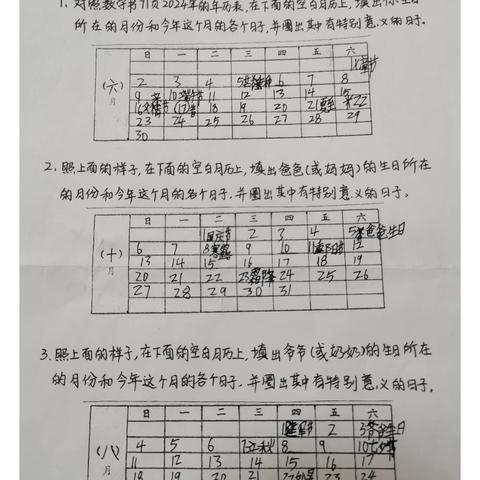 1. 对照数学书71页2024年的年历表,在下面的空白月历上,填出你生日
所在的月份和今年这个月的各个日子,并圈出其中有特别意义的日子。
日 一 二 三 四 五 六
(六)月
1儿童节
2 3 4 5芒种 6 7 8
9 10端午节 11 12 13 14 15
16父亲节 17 18 19 20 21夏至 22
23 24 25 26 27 28 29
30
2. 照上面的样子,在下面的空白月历上,填出爸爸(或妈妈)的生日所在
的月份和今年这个月的各个日子,并圈出其中有特别意义的日子。
日 一 二 三 四 五 六
(十)月
1国庆节 2 3 4 5爸爸生日
6 7 8寒露 9 10 11重阳节 12
13 14 15 16 17 18 19
20 21 22 23霜降 24 25 26
27 28 29 30 31
3. 照上面的样子,在下面的空白月历上,填出爷爷(或奶奶)的生日所在
的月份和今年这个月的各个日子,并圈出其中有特别意义的日子。
日 一 二 三 四 五 六
(八)月
1建军节 2 3爷爷生日
4 5 6 7立秋 8 9 10七夕节
11 12 13 14 15 16 17
18 19 20 21 22 23 24